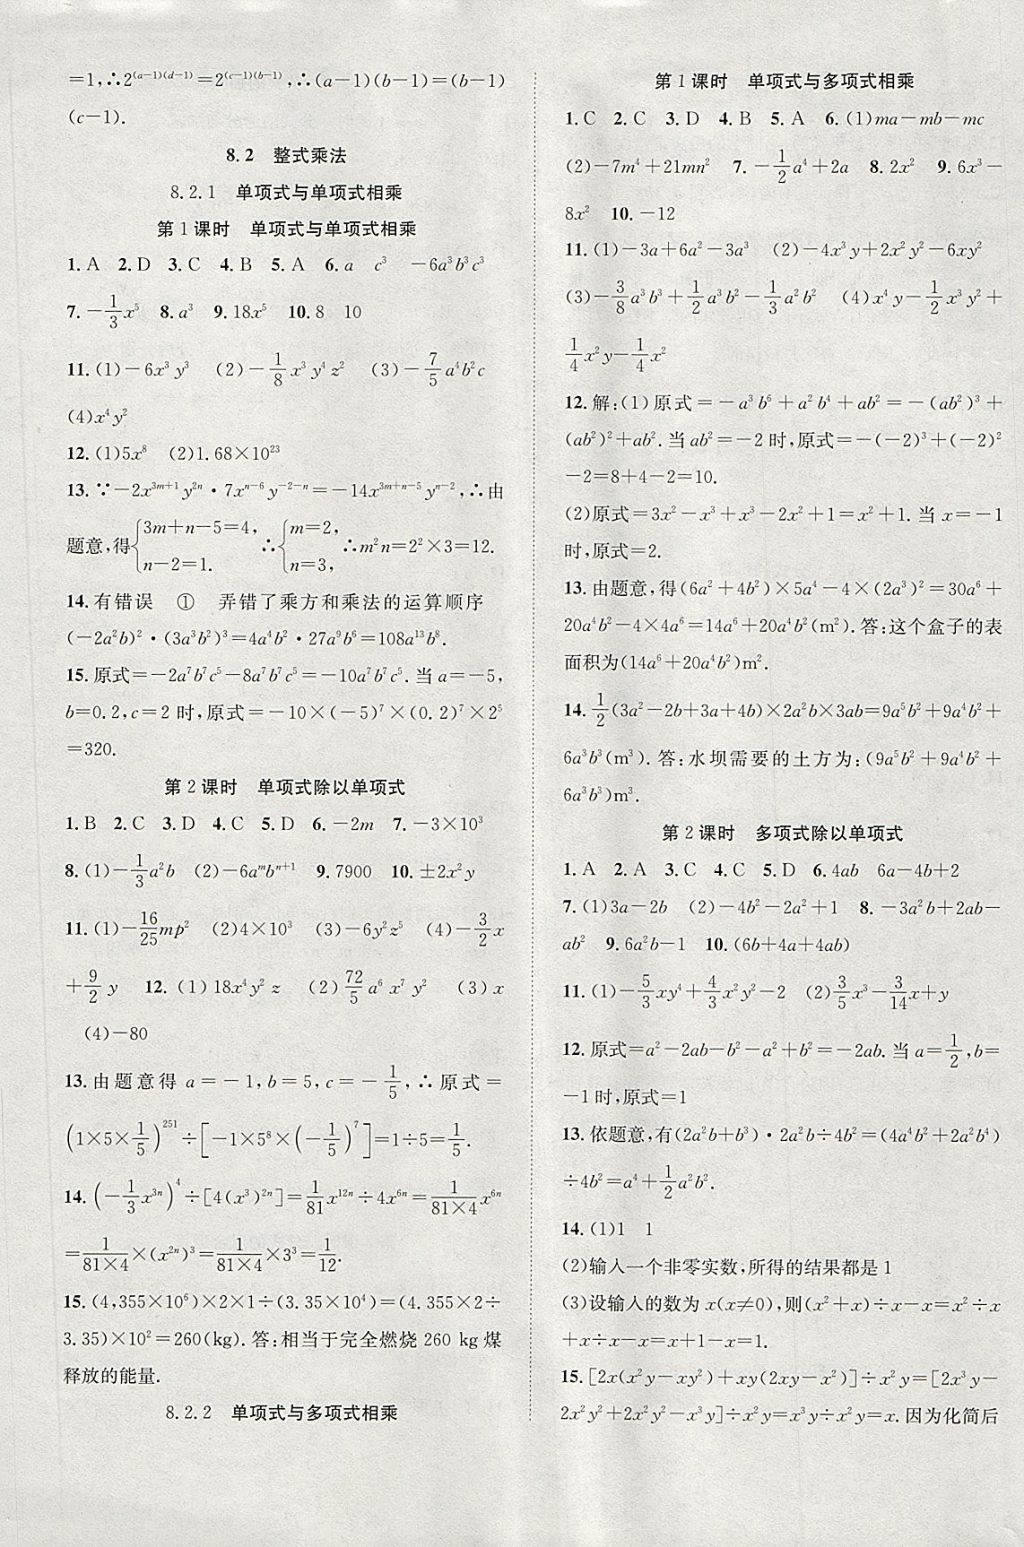 =1,∴2^{(a-1)(d-1)}=2^{(c-1)(b-1)},∴(a-1)(b-1)=(b-1)
(c-1).
8.2 整式乘法
8.2.1 单项式与单项式相乘
第1课时 单项式与单项式相乘
1.A 2.D 3.C 4.B 5.A 6.a c³ -6a³b³c³
7.-\frac{1}{3}x⁵ 8.a³ 9.18x⁵ 10.8 10
11.(1)-6x³y³ (2)-\frac{1}{8}x³y⁴z² (3)-\frac{7}{5}a⁴b²c
(4)x⁴y²
12.(1)5x⁸ (2)1.68×10²³
13.∵-2x^{3m+1}y^{2n}·7x^{n-6}y^{-2-n}=-14x^{3m+n-5}y^{n-2},∴由
题意,得{3m+n-5=4, n-2=1. ∴{m=2, n=3, ∴m²n=2²×3=12.
14.有错误 ① 弄错了乘方和乘法的运算顺序
(-2a²b)²·(3a³b²)³=4a⁴b²·27a⁹b⁶=108a¹³b⁸.
15.原式=-2a⁷b⁷c⁵-8a⁷b⁷c⁵=-10a⁷b⁷c⁵.当a=-5,
b=0.2,c=2时,原式=-10×(-5)⁷×(0.2)⁷×2⁵
=320.
第2课时 单项式除以单项式
1.B 2.C 3.D 4.C 5.D 6.-2m 7.-3×10³
8.(1)-\frac{1}{3}a²b (2)-6a^{m}b^{n+1} 9.7900 10.±2x²y
11.(1)-\frac{16}{25}mp² (2)4×10³ (3)-6y²z⁵ (4)-\frac{3}{2}x
+\frac{9}{2}y 12.(1)18x⁴y²z (2)\frac{72}{5}a⁶x⁷y² (3)x
(4)-80
13.由题意得a=-1,b=5,c=-\frac{1}{5},∴原式=
(1×5×\frac{1}{5})^{251}÷[-1×5⁸×(-\frac{1}{5})⁷]=1÷5=\frac{1}{5}.
14.(-\frac{1}{3}x^{3n})⁴÷[4(x³)^{2n}]=\frac{1}{81}x^{12n}÷4x^{6n}=\frac{1}{81×4}x^{6n}
=\frac{1}{81×4}×(x^{2n})³=\frac{1}{81×4}×3³=\frac{1}{12}.
15.(4,355×10⁶)×2×1÷(3.35×10⁴)=(4.355×2÷
3.35)×10²=260(kg).答:相当于完全燃烧260 kg煤
释放的能量.
8.2.2 单项式与多项式相乘
第1课时 单项式与多项式相乘
1.C 2.C 3.D 4.B 5.A 6.(1)ma-mb-mc
(2)-7m⁴+21mn² 7.-\frac{1}{2}a⁴+2a 8.2x² 9.6x³-
8x² 10.-12
11.(1)-3a+6a²-3a³ (2)-4x³y+2x²y²-6xy²
(3)-\frac{3}{8}a³b³+\frac{1}{2}a³b²-\frac{1}{3}a²b² (4)x⁴y-\frac{1}{2}x³y²+
\frac{1}{4}x²y-\frac{1}{4}x²
12.解:(1)原式=-a³b⁶+a²b⁴+ab²=-(ab²)³+
(ab²)²+ab².当ab²=-2时,原式=-(-2)³+(-2)²
-2=8+4-2=10.
(2)原式=3x²-x³+x³-2x²+1=x²+1.当x=-1
时,原式=2.
13.由题意,得(6a²+4b²)×5a⁴-4×(2a³)²=30a⁶+
20a⁴b²-4×4a⁶=14a⁶+20a⁴b²(m²).答:这个盒子的表
面积为(14a⁶+20a⁴b²)m².
14.\frac{1}{2}(3a²-2b+3a+4b)×2a²b×3ab=9a⁵b²+9a⁴b²+
6a³b³(m³).答:水坝需要的土方为:(9a⁵b²+9a⁴b²+
6a³b³)m³.
第2课时 多项式除以单项式
1.A 2.A 3.C 4.C 5.D 6.4ab 6a-4b+2
7.(1)3a-2b (2)-4b²-2a²+1 8.-3a²b+2ab-
ab² 9.6a²b-1 10.(6b+4a+4ab)
11.(1)-\frac{5}{3}xy⁴+\frac{4}{3}x²y²-2 (2)\frac{3}{5}x³-\frac{3}{14}x+y
12.原式=a²-2ab-b²-a²+b²=-2ab.当a=\frac{1}{2},b=
-1时,原式=1
13.依题意,有(2a²b+b³)·2a²b÷4b²=(4a⁴b²+2a²b⁴)
÷4b²=a⁴+\frac{1}{2}a²b².
14.(1)1 1
(2)输入一个非零实数,所得的结果都是1
(3)设输入的数为x(x≠0),则(x²+x)÷x-x=x²÷x
+x÷x-x=x+1-x=1.
15.[2x(x²y-xy²)+xy(2xy-x²)]÷x²y=[2x³y-
2x²y²+2x²y²-x³y]÷x²y=x³y÷x²y=x.因为化简后